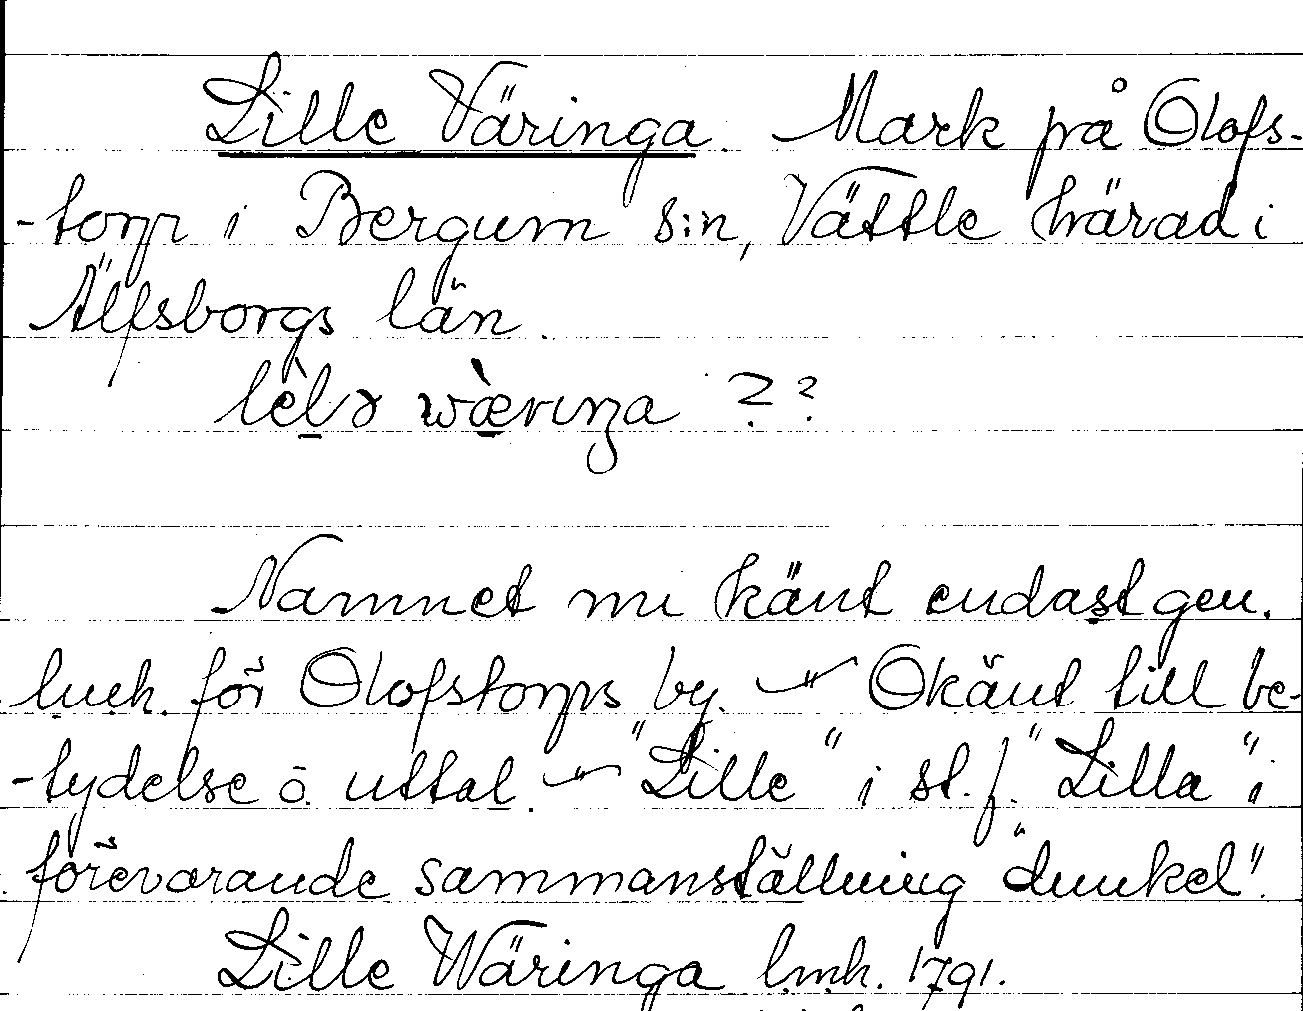 Lille Väringa. Mark på Olofs-
-torp i Bergum s:n, Vättle härad i
Älfsborgs län.
lèlə wæ̀riŋa ??
Namnet nu känt endast gen.
l.m.h. för Olofstorps by. –"– Okänt till be-
-tydelse o. uttal. –"– "Lille" i st. f. "Lilla" i
förevarande sammanställning "dunkel".
Lille Wäringa l.m.h. 1791.